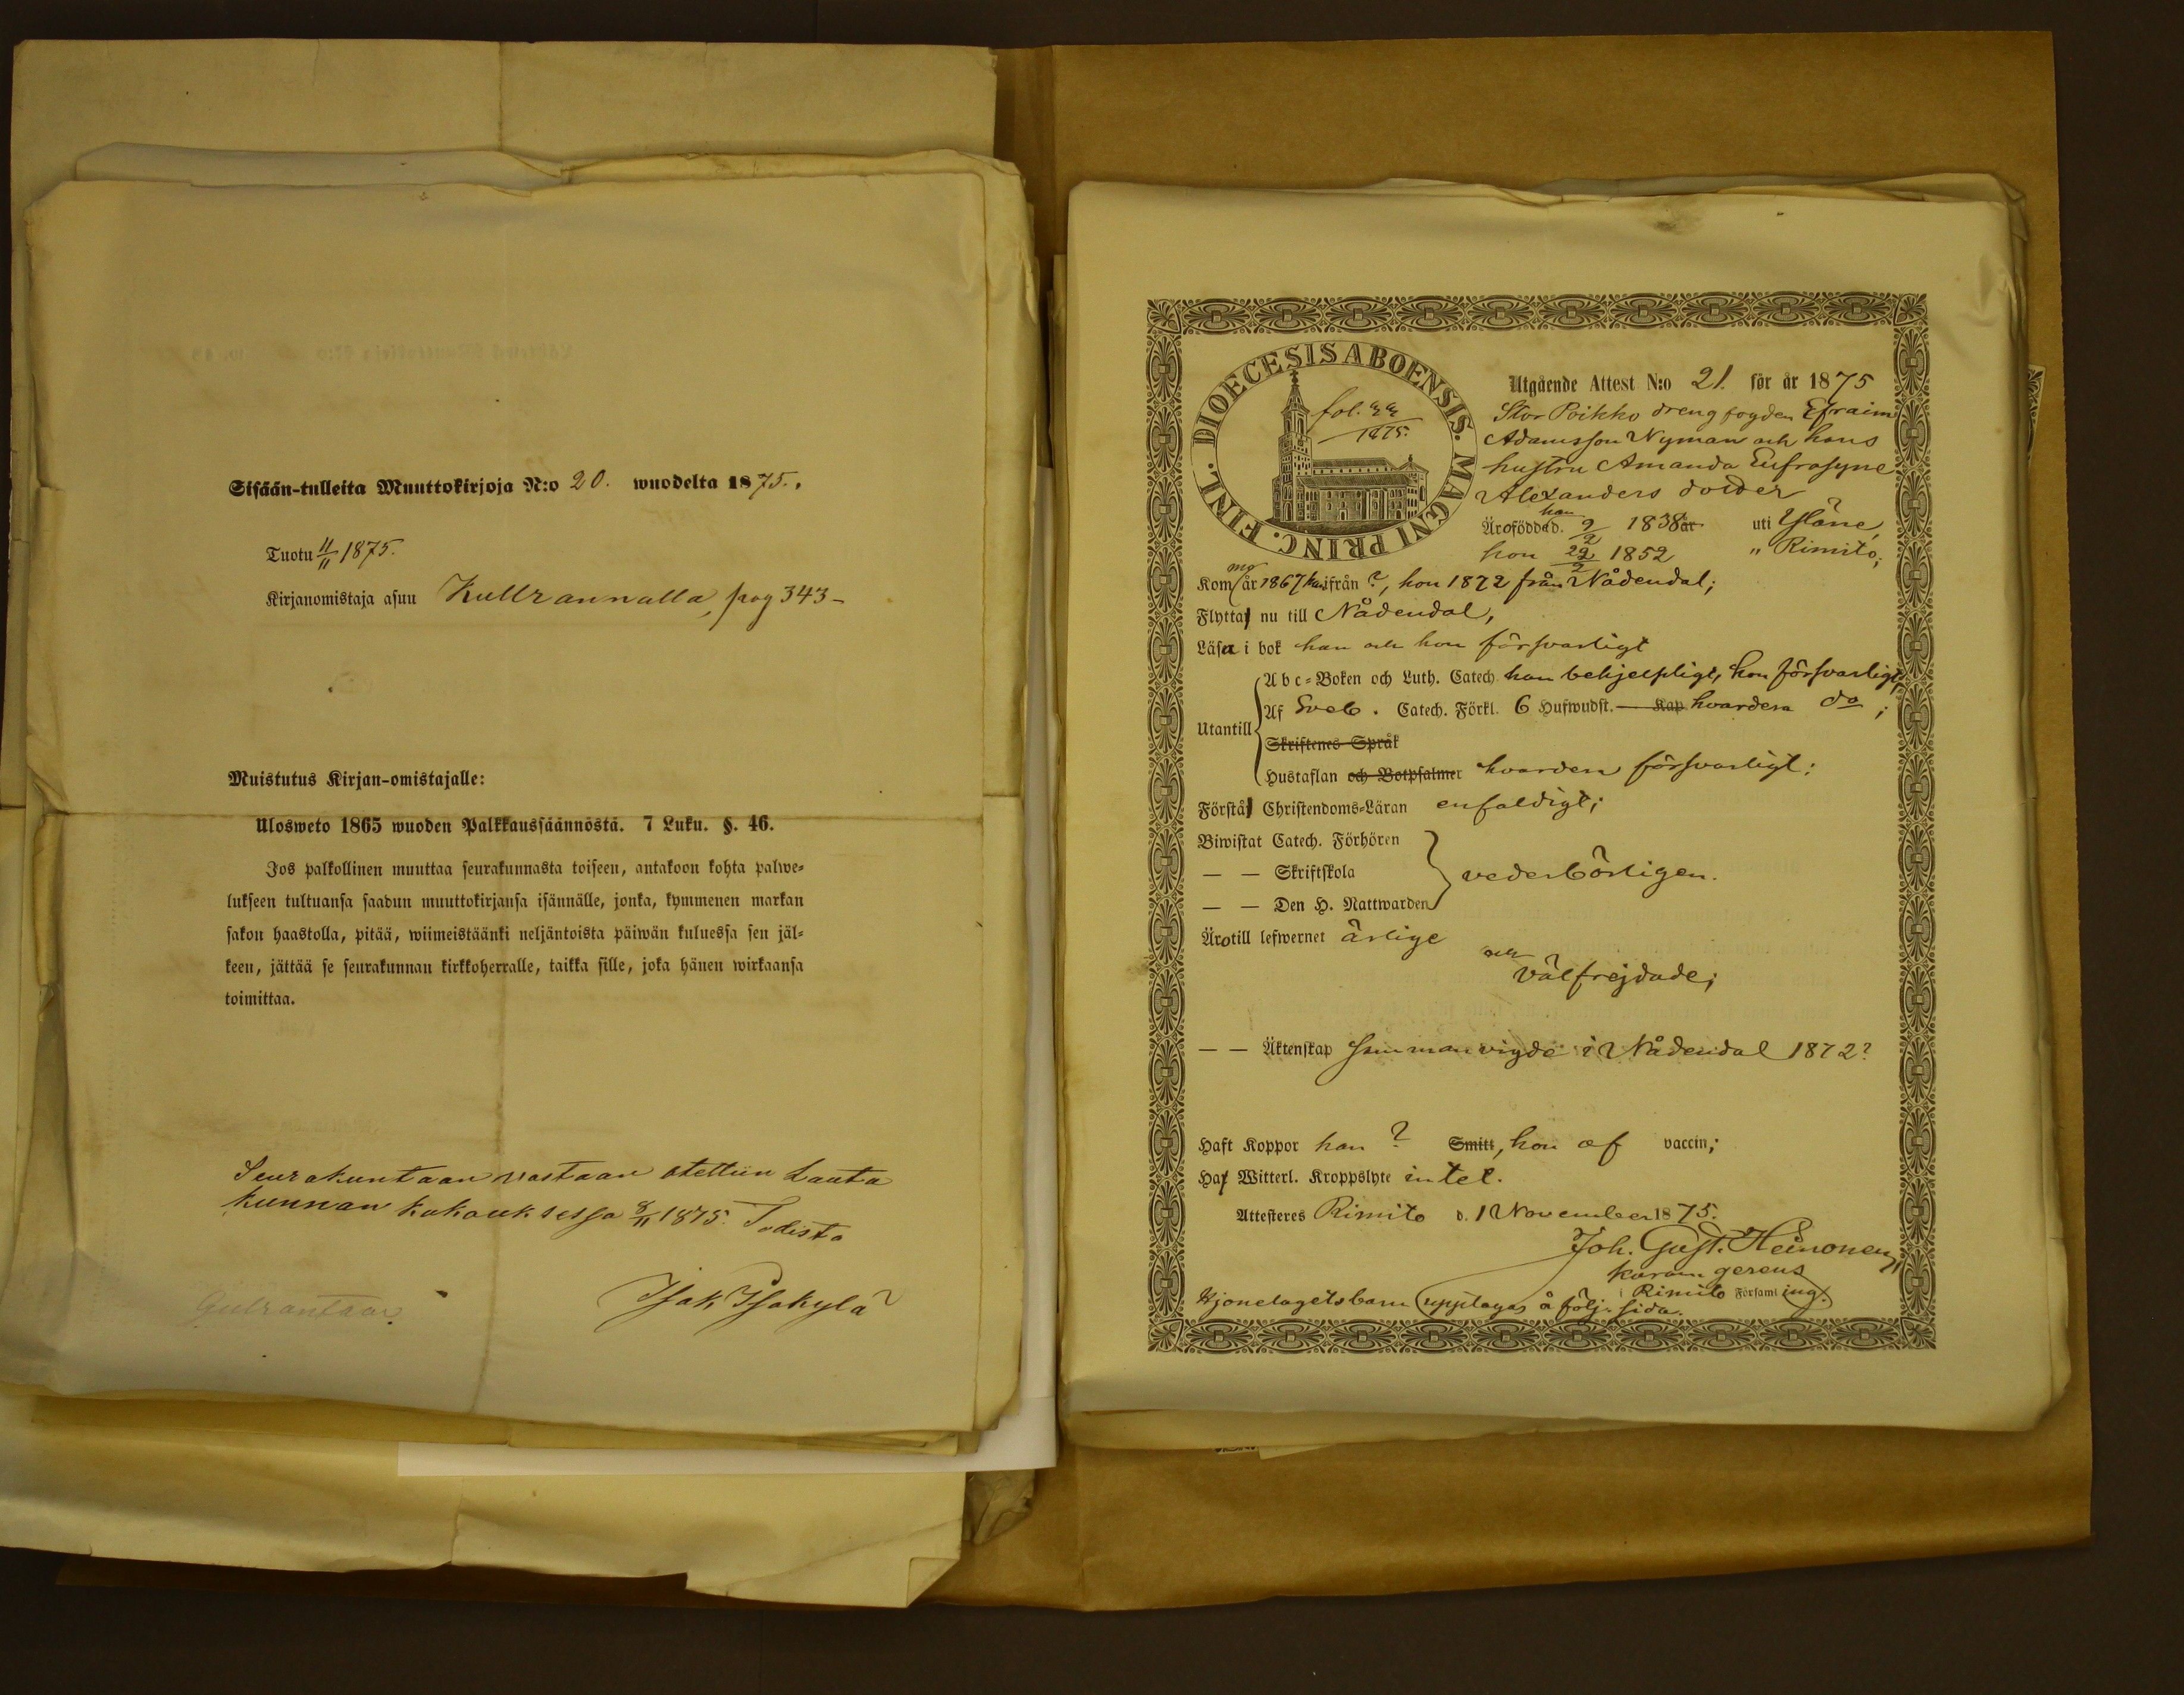 Sisään-tulleita Muuttokirjoja N:o 20. wuodelta 1875.
Tuotu 11/11 1875.
Kirjanomistaja asuu Kullrannalla, pag 343 –
Muistutus Kirjan-omistajalle:
Ulosweto 1865 wuoden Palkkaussäännöstä. 7 Luku. §. 46.
Jos palkollinen muuttaa seurakunnasta toiseen, antakoon kohta palwe-
lukseen tultuansa saadun muuttokirjansa isännälle, jonka, kymmenen markan
sakon haastolla, pitää, wiimeistäänki neljäntoista päiwän kuluessa sen jäl-
keen, jättää se seurakunnan kirkkoherralle, taikka sille, joka hänen wirkaansa
toimittaa.
Seurakuntaan vastaan otettiin Lauta
kunnan kokouksessa 8/11 1875. Todista
Isak Isokylä
Gulrantaan
DIOECESIS ABOENSIS. MAGNI PRINC. FINL.
fol. 44
1875.
Utgående Attest N:o 21. för år 1875
Stor Poikko drengfogden Efraim
Adamsson Nyman och hans
hustru Amanda Eufrosyne
Alexanders dotter
Äro födde d. han 9/2 1838 år uti Yläne,
hon 22/2 1852 " Rimito;
Kommo år 1867 han ifrån ?, hon 1872 från Nådendal;
Flytta nu till Nådendal,
Läsa i bok han och hon försvarligt
Utantill
Abc-Boken och Luth. Catech han behjelpligt, hon försvarligt,
Af Sveb. Catech. Förkl. 6 Hufwudst. — Kap hvardera do;
Skriftenes Språk
Hustaflan och Botpsalmer hvardera försvarligt;
Förstå Christendoms-Läran enfaldigt;
Biwistat Catech. Förhören
— — Skriftskola vederbörligen.
— — Den H. Nattwarden
Äro till lefwernet ärlige
och välfrejdade;
— — Äktenskap sammanvigde i Nådendal 1872?
Haft Koppor han ? Smitt, hon af vaccin;
Haf Witterl. Kroppslyte intet.
Attesteres Rimito d. 1 November 1875.
Joh. Gust. Heinonen
curam gerens
i Rimito Församling.
Kjonelagetsbarn upptages å följ. sida.